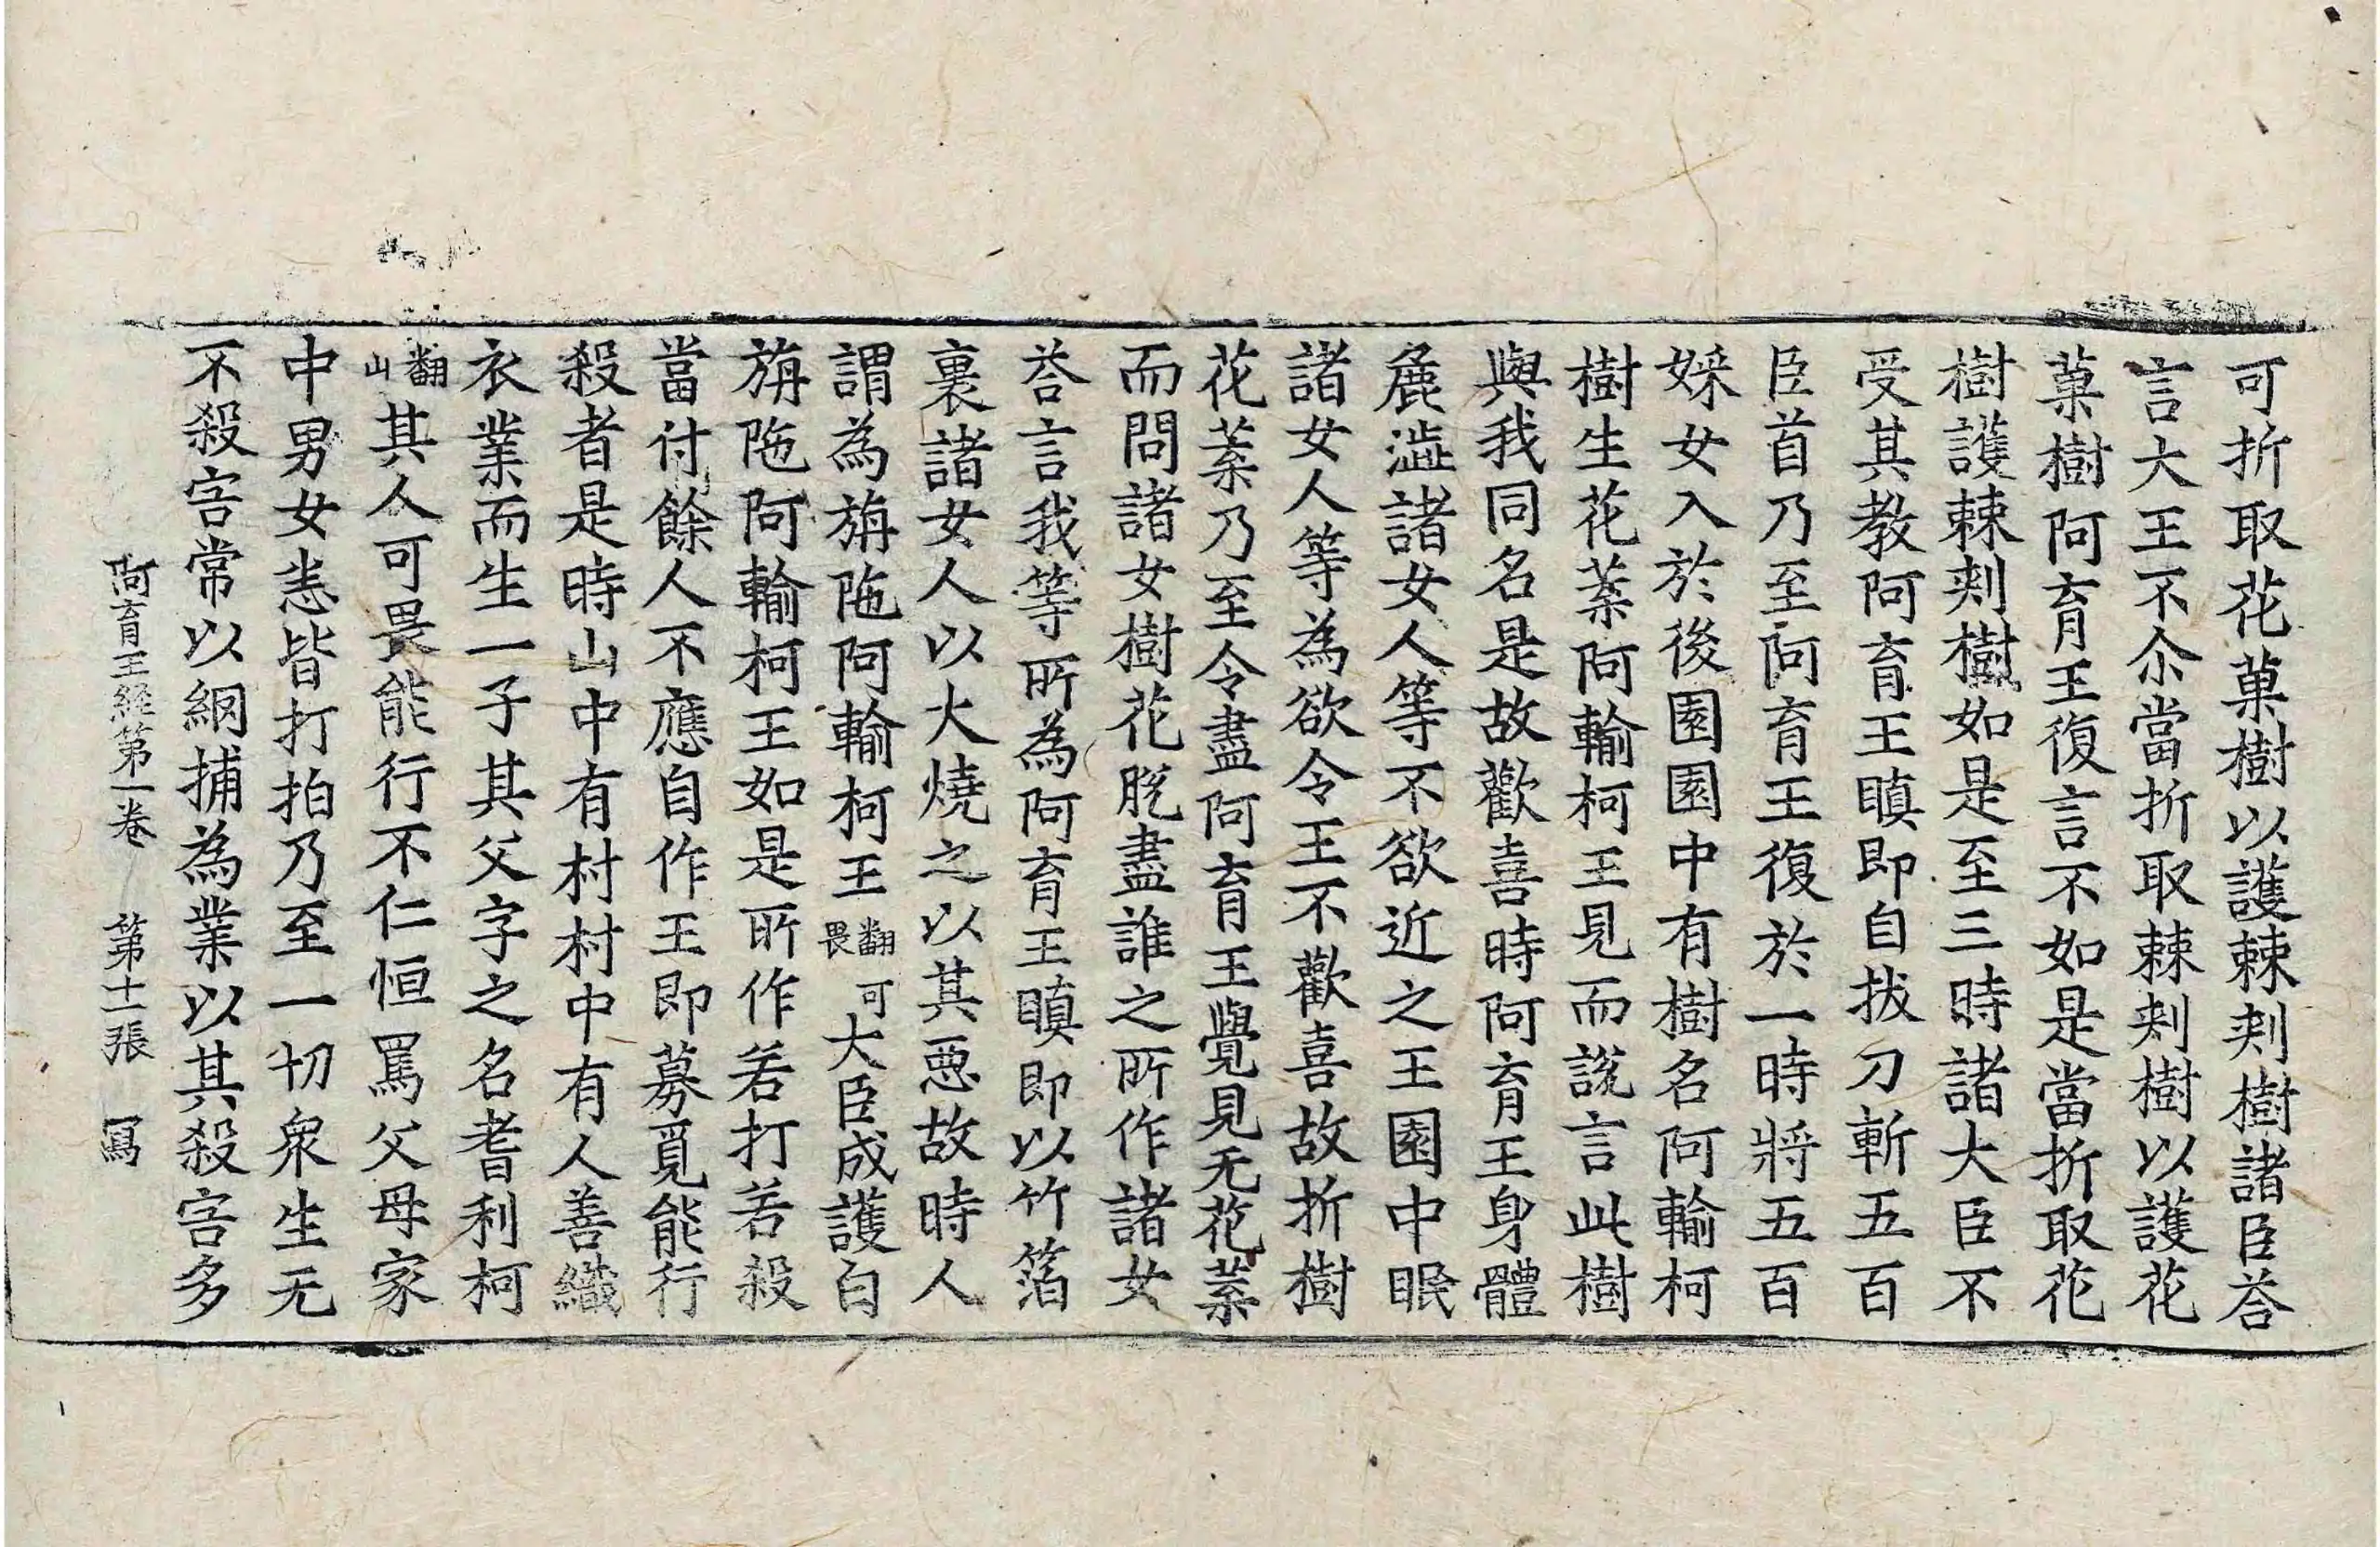 可折取花菓樹以護棘刾樹諸臣荅
言大王不尒當折取棘刾樹以護花
菓樹阿育王復言不如是當折取花
樹護棘刾樹如是至三時諸大臣不
受其教阿育王瞋即自拔刀斬五百
臣首乃至阿育王復於一時將五百
婇女入於後園園中有樹名阿輸柯
樹生花葉阿輸柯王見而說言此樹
與我同名是故歡喜時阿育王身體
麁澁諸女人等不欲近之王園中眠
諸女人等為欲令王不歡喜故折樹
花葉乃至令盡阿育王覺見无花葉
而問諸女樹花脫盡誰之所作諸女
荅言我等所為阿育王瞋即以竹箔
裏諸女人以火燒之以其惡故時人
謂為旃陁阿輸柯王翻可畏大臣成護白
旃陁阿輸柯王如是所作若打若殺
當付餘人不應自作王即募覓能行
殺者是時山中有村村中有人善織
衣業而生一子其父字之名耆利柯
翻山其人可畏能行不仁恒罵父母家
中男女恚皆打拍乃至一切衆生无
不殺害常以網捕為業以其殺害多
阿育王經第一卷 第十二張 寫